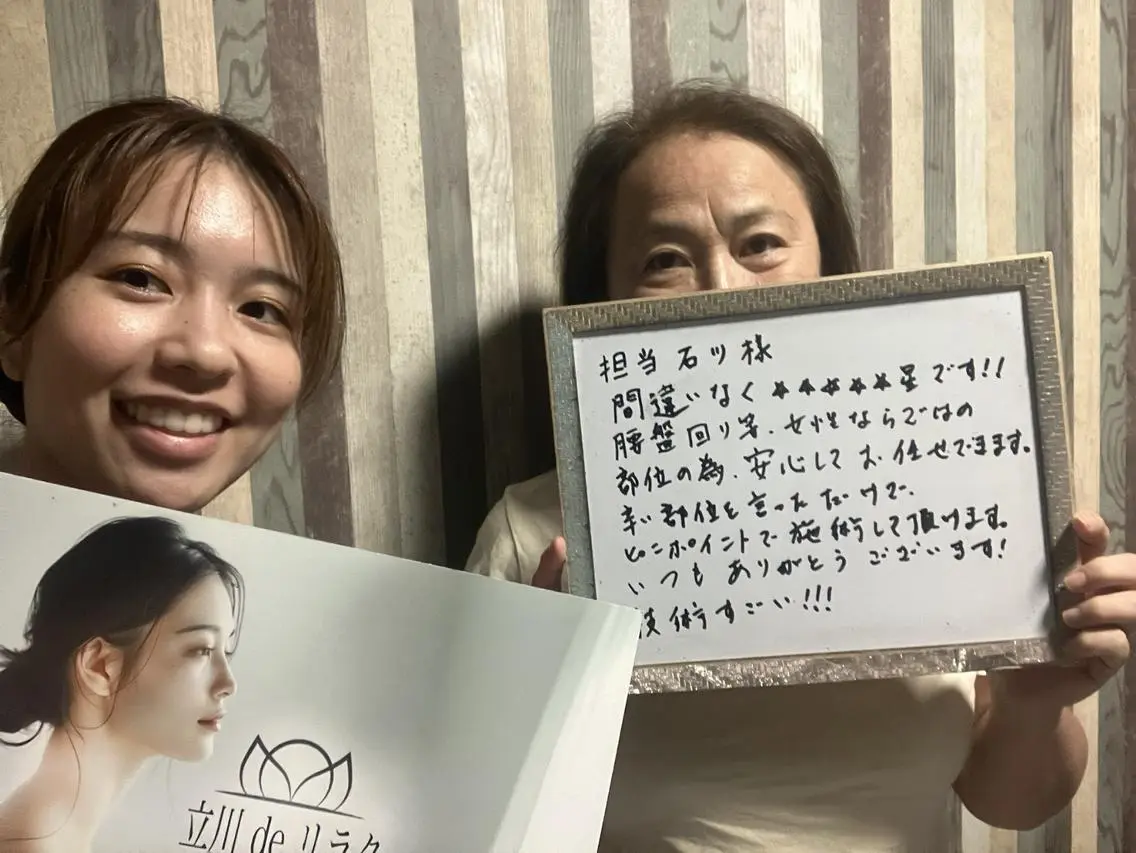 担当 石ツ様
間違いなく★★★★★星です!!
腰盤回り等、女性ならではの
部位の為、安心してお任せできます。
辛い部位を言っただけで、
ピンポイントで施術して頂けます。
いつもありがとうございます!
技術すごい!!!
立川 de リラク